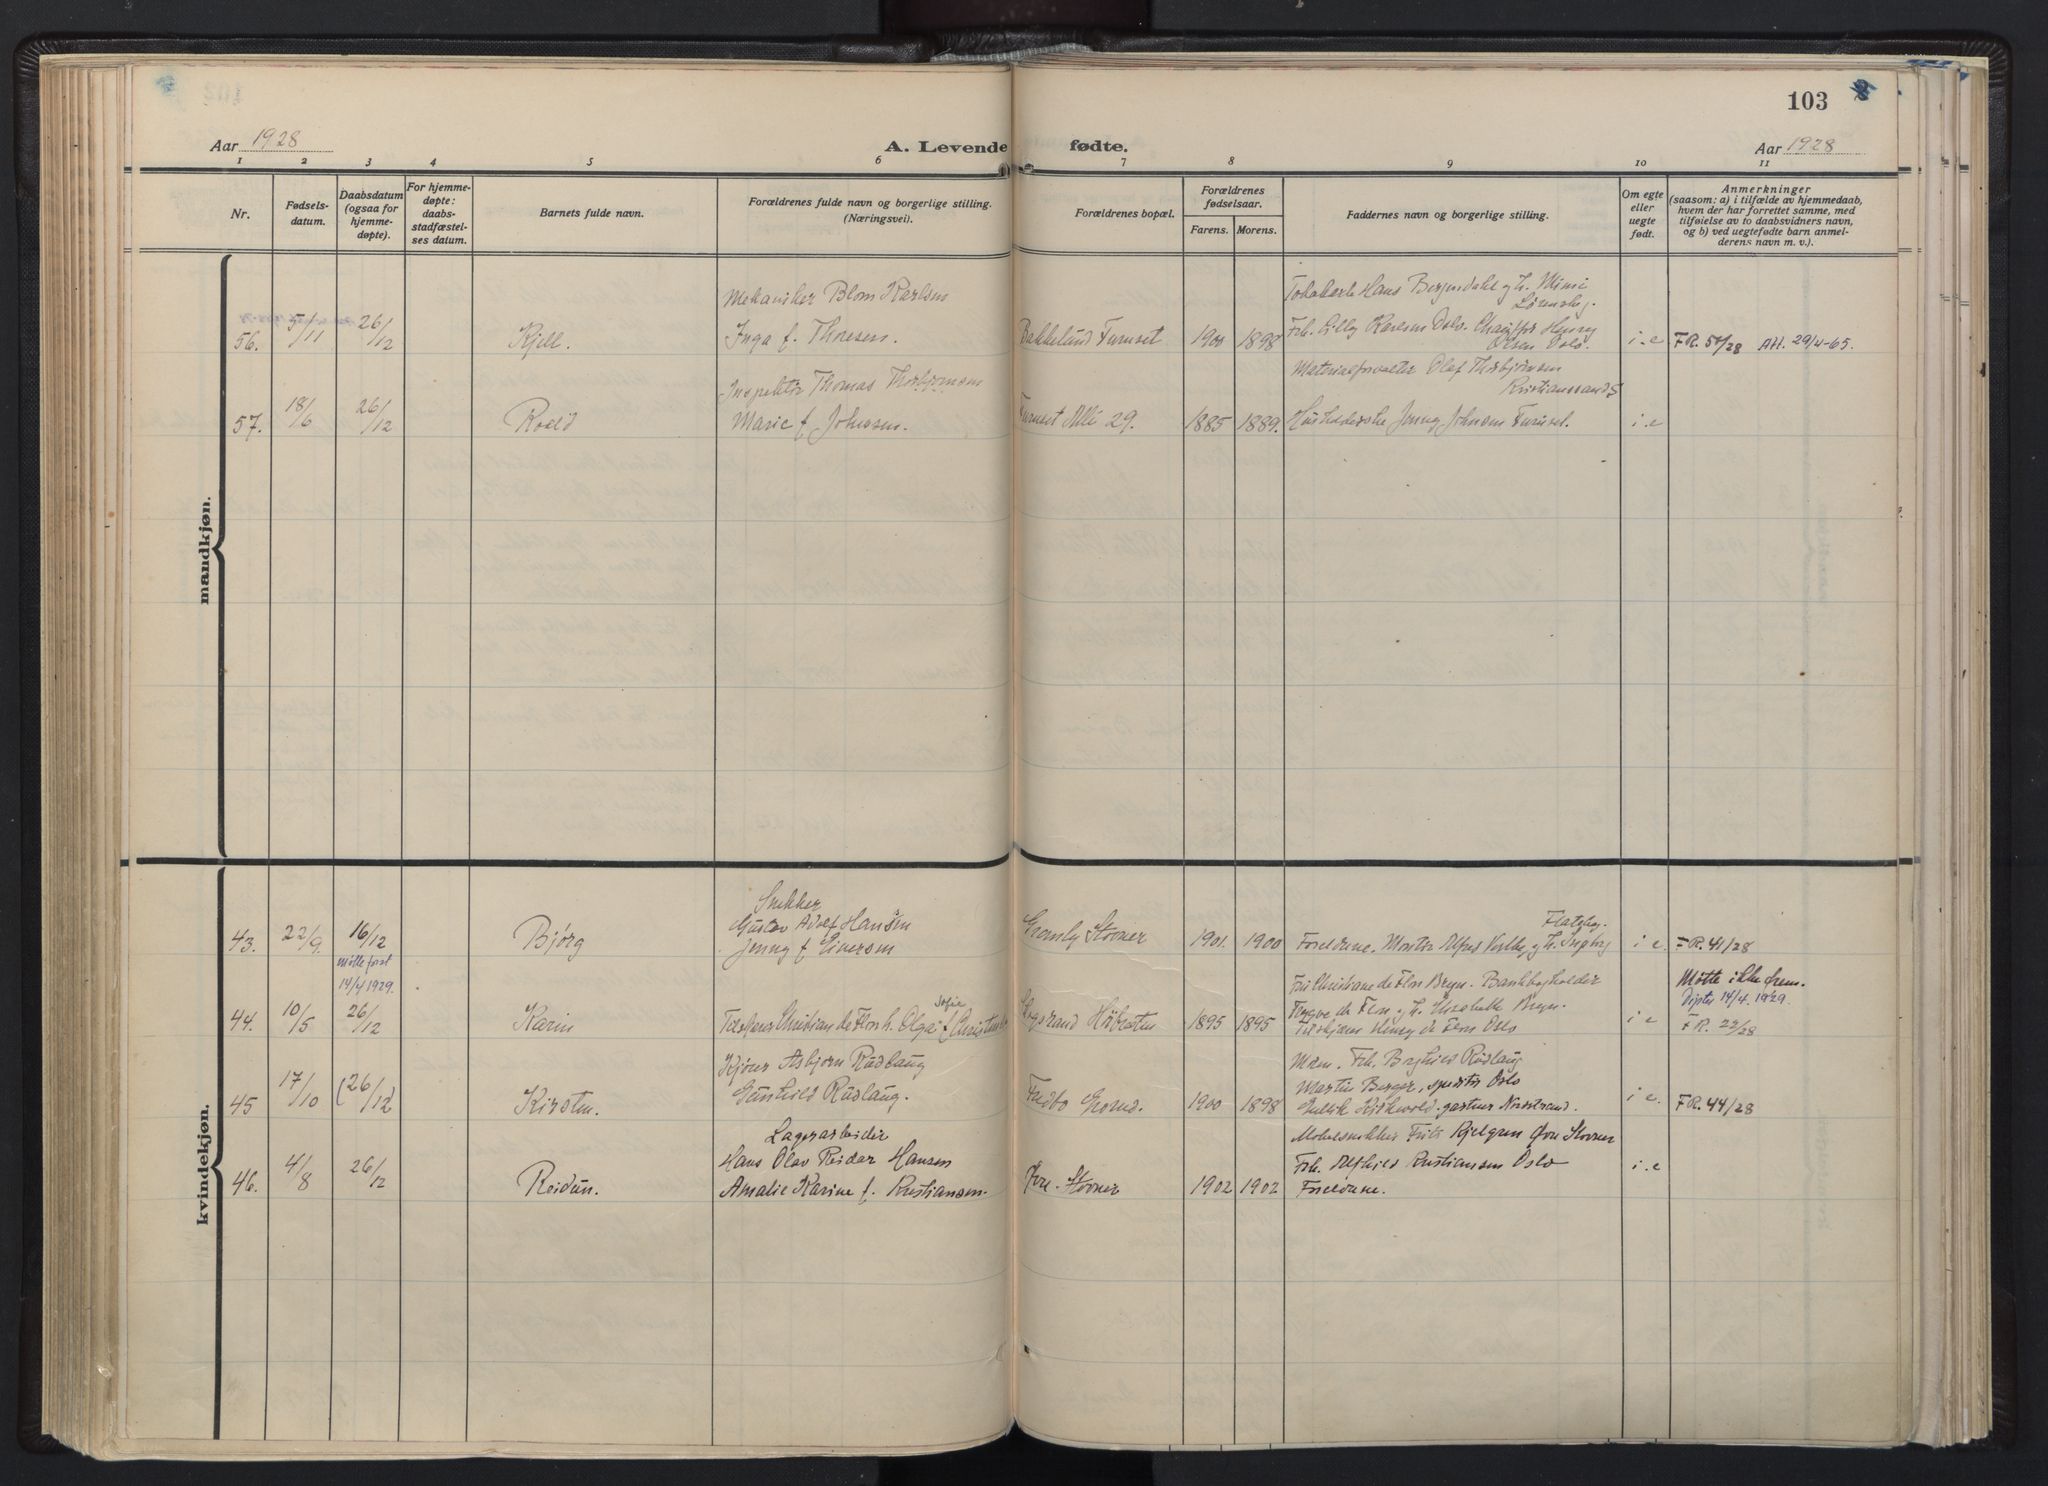 103
Aar 1928
A. Levende fødte.
Aar 1928
1 2 3 4 5 6 7 8 9 10 11
Nr.
Fødsels-
datum.
Daabsdatum
(ogsaa for
hjemme-
døpte).
For hjemme-
døpte:
daabs-
stadfæstel-
ses datum.
Barnets fulde navn.
Forældrenes fulde navn og borgerlige stilling.
(Næringsvei).
Forældrenes bopæl.
Forældrenes
fødselsaar.
Farens. Morens.
Faddernes navn og borgerlige stilling.
Om egte
eller
uegte
født.
Anmerkninger
(saasom: a) i tilfælde av hjemmedaab,
hvem der har forrettet samme, med
tilføielse av to daabsvidners navn,
og b) ved uegtefødte barn anmel-
derens navn m. v.).
mandkjøn.
56. 5/11 26/12 Kjell.
Mekaniker Blom Karlsen
Inga f. Thoresen.
Bakkelund Furuset 1900 1898
Hans Bergendahl og h. Mimi
Frk. Lilly Karlsen Oslo. Chauffør Henry
Olsen Oslo.
i. e FR. 57/28 Att. 29/4-65.
57. 18/6 26/12 Roald
Inspektør Thomas Thorbjørnsen
Marie f Johnsen.
Furuset Alle 29. 1885 1889.
Materialforvalter Olaf Thorbjørnsen
Kristianssand S
Husholderske Jenny Johnsen Furuset.
i. e
kvindekjøn.
43. 22/9. 16/12 Bjørg
Snekker
Gustav Adolf Hansen
Jenny f Eversen
Stovner 1901. 1900
Foreldrene. Montør Alfred
i e. FR. 41/28
møtte først
14/4 1929.
44. 10/5 26/12 Karin
Christian de Flon h. Olga Sofie f
Høibråten 1895 1895
Fru Christiane de Flon Bryn. Bankbogholder
Trygve de Flon og h. Elisabeth Bryn.
Henry de Flon Oslo
i e
Møtte ikke frem.
Døpt 14/4. 1929.
FR. 22/28
45 17/10 (26/12) Kirsten.
Asbjørn Rudlaug
Gunhild Rudlaug.
Grorud. 1900 1898
Moren. Frk. Borghild Rudlaug
Martin Berger, speditør Oslo
gartner Nordstrand.
i e. FR. 44/28
46. 4/8 26/12 Reidun.
Lagerarbeider
Hans Olav Reidar Hansen
Amalie Karine f. Kristiansen.
Øvre Stovner 1902 1902
Møbelsnekker Frits Kjelgren Øvre Stovner
Frk. Alfhild Kristiansen Oslo
Foreldrene.
i. e